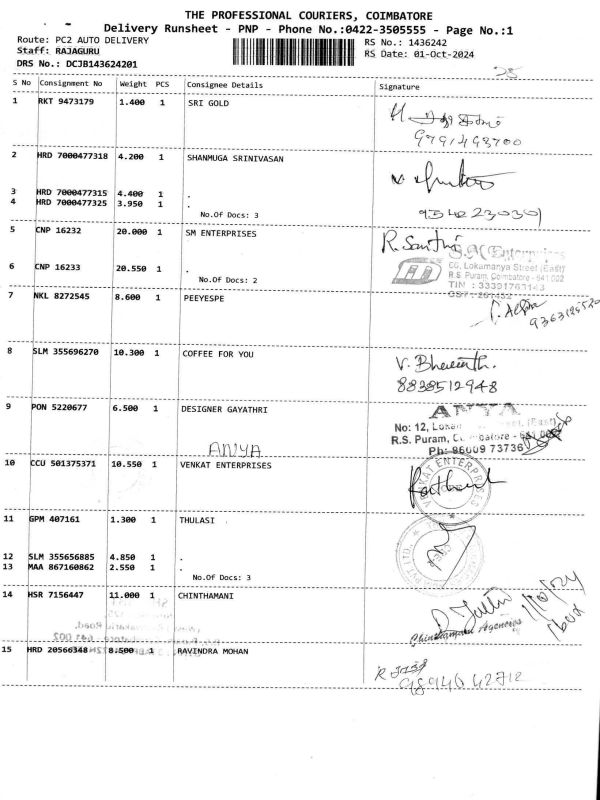 THE PROFESSIONAL COURIERS, COIMBATORE
Delivery Runsheet - PNP - Phone No.:0422-3505555 - Page No.:1
Route: PC2 AUTO DELIVERY RS No.: 1436242
Staff: RAJAGURU RS Date: 01-Oct-2024
DRS No.: DCJB143624201
S No Consignment No Weight PCS Consignee Details Signature
1 RKT 9473179 1.400 1 SRI GOLD
2 HRD 7000477318 4.200 1 SHANMUGA SRINIVASAN
3 HRD 7000477315 4.400 1 .
4 HRD 7000477325 3.950 1 .
No.Of Docs: 3
5 CNP 16232 20.000 1 SM ENTERPRISES
R. Santhi
S.M Enterprises
CG, Lokamanya Street (East)
6 CNP 16233 20.550 1 .
R.S Puram, Coimbatore - 641 002
No.Of Docs: 2
7 NKL 8272545 8.600 1 PEEYESPE
8 SLM 355696270 10.300 1 COFFEE FOR YOU
V. Bharath.
8838512948
9 PON 5220677 6.500 1 DESIGNER GAYATHRI
ANYA
No: 12,
R.S. Puram,
Ph: 86009 73736
ANYA
10 CCU 501375371 10.550 1 VENKAT ENTERPRISES
11 GPM 407161 1.300 1 THULASI
12 SLM 355656885 4.850 1 .
13 MAA 867160862 2.550 1 .
No.Of Docs: 3
14 HSR 7156447 11.000 1 CHINTHAMANI
1/10/24
1 box
Chinthamani Agencies
15 HRD 20566348 8.500 1 RAVINDRA MOHAN